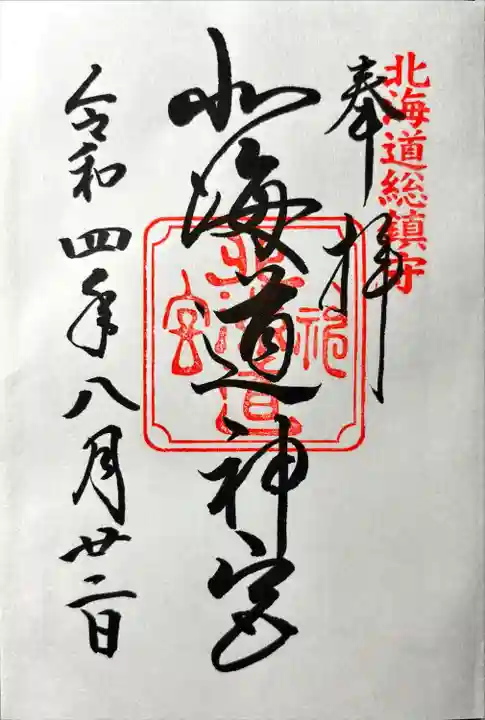 北海道総鎮守
奉拝
北海道神宮
北海道
神宮
令和四年八月廿二日